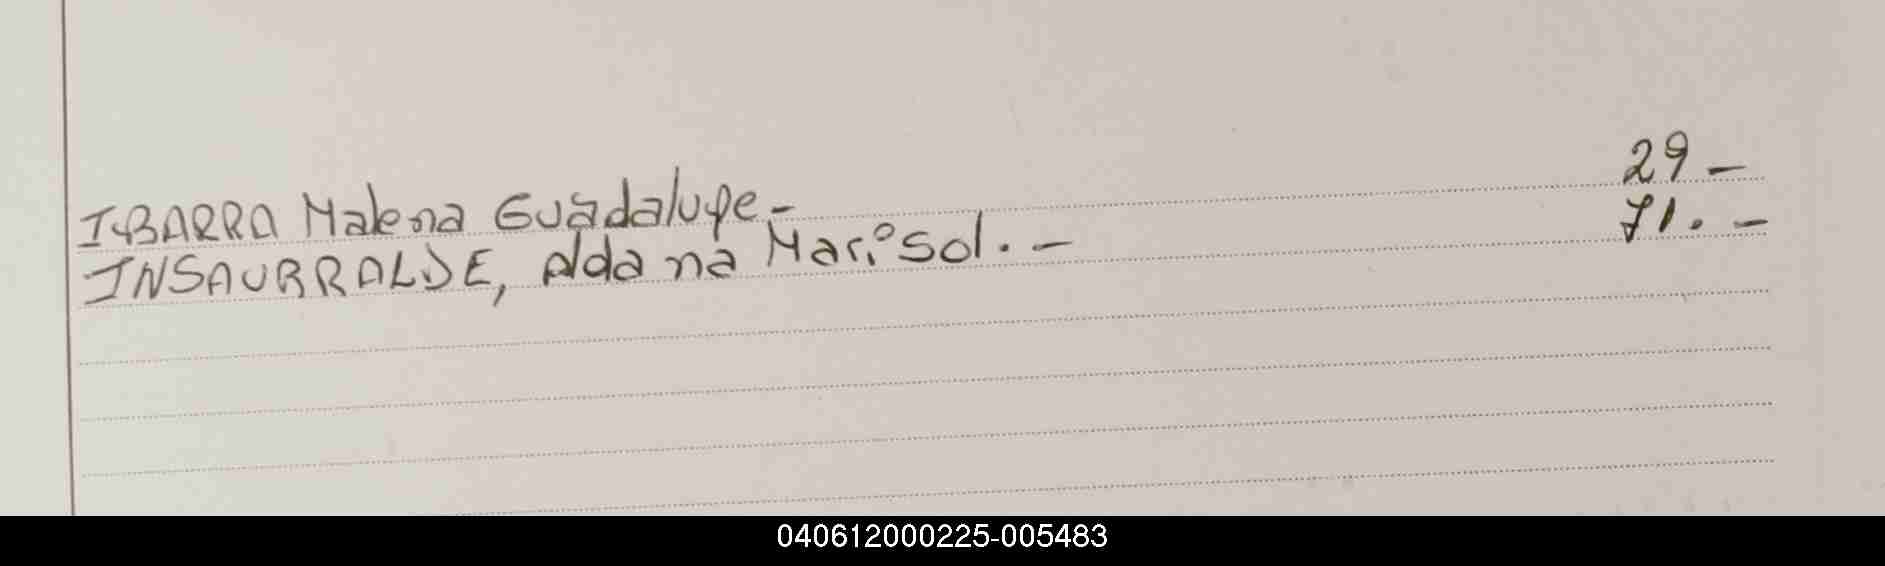 IBARRA Malena Guadalupe.- 29 -
INSAURRALDE, Aldana Marisol. - 71. -
040612000225-005483